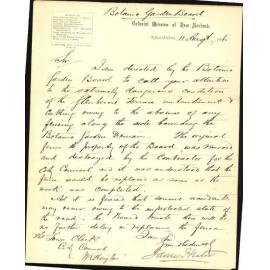 Botanic Garden Board
Colonial Museum of New Zealand,
WELLINGTON, 11 Augt 186
Sir
I am directed by the Botanic
Garden Board to call your attention
to the extremely dangerous condition
of the Glenbervie Terrace embankment
owing to the absence of any
fencing along the side bounding the
Botanic Garden Domain. The original
fence the property of the Board, was removed
and destroyed by the Contractor for the
City Council and it was understood that the
fence would be replaced as soon as the
work was completed.
As it is feared that serious accidents
may occur owing to the unprotected state of
the road, the Board trusts there will be
no further delay in replacing the fence.
I am Sir
The Town Clerk
City Council
Wellington